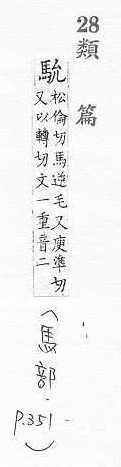 28
類篇
馻
松倫切馬逆毛又庾準切
又以轉切文一重音二
（馬部
P.351）